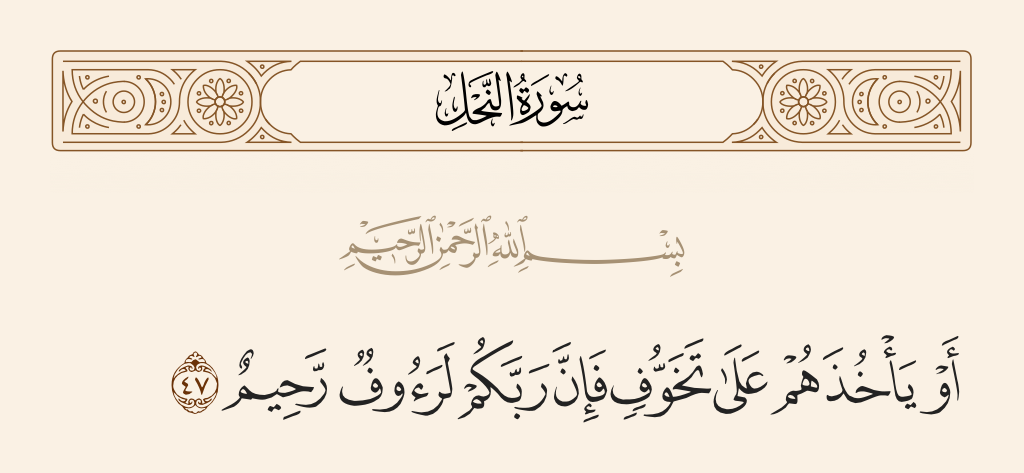 سُورَةُ النَّحْلِ
بِسْمِ ٱللَّهِ ٱلرَّحْمَٰنِ ٱلرَّحِيمِ
أَوْ يَأْخُذَهُمْ عَلَىٰ تَخَوُّفٍ فَإِنَّ رَبَّكُمْ لَرَءُوفٌ رَّحِيمٌ ٤٧